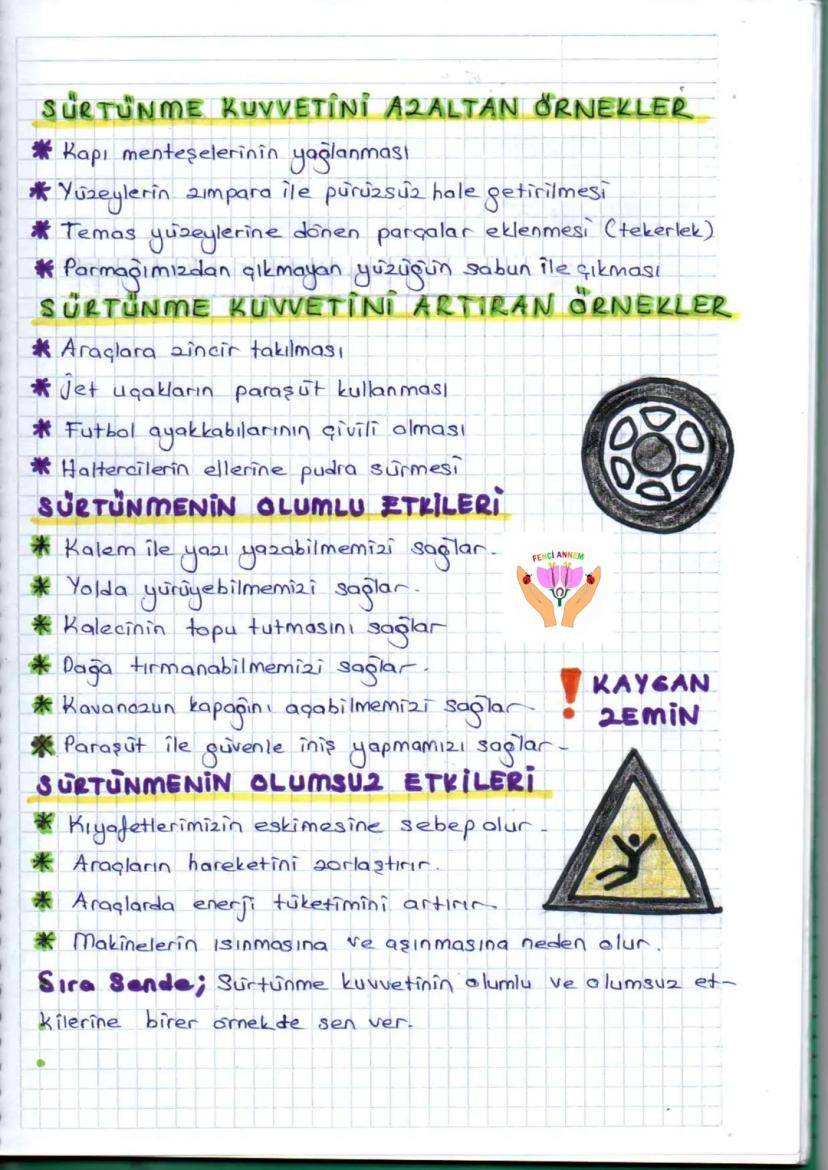 SÜRTÜNME KUVVETİNİ AZALTAN ÖRNEKLER
* Kapı menteşelerinin yağlanması
* Yüzeylerin zımpara ile pürüzsüz hale getirilmesi
* Temas yüzeylerine dönen parçalar eklenmesi (tekerlek)
* Parmağımızdan çıkmayan yüzüğün sabun ile çıkması
SÜRTÜNME KUVVETİNİ ARTIRAN ÖRNEKLER
* Araçlara zincir takılması
* Jet uçakların paraşüt kullanması
* Futbol ayakkabılarının çivili olması
* Haltercilerin ellerine pudra sürmesi
SÜRTÜNMENİN OLUMLU ETKİLERİ
* Kalem ile yazı yazabilmemizi sağlar.
FENCİ ANNEM
* Yolda yürüyebilmemizi sağlar.
* Kalecinin topu tutmasını sağlar
* Dağa tırmanabilmemizi sağlar.
* Kavanozun kapağını açabilmemizi sağlar.
! KAYGAN
ZEMİN
* Paraşüt ile güvenle iniş yapmamızı sağlar.
SÜRTÜNMENİN OLUMSUZ ETKİLERİ
* Kıyafetlerimizin eskimesine sebep olur.
* Araçların hareketini zorlaştırır.
* Araçlarda enerji tüketimini artırır.
* Makinelerin ısınmasına ve aşınmasına neden olur.
Sıra Sende; Sürtünme kuvvetinin olumlu ve olumsuz et-
kilerine birer örnekde sen ver.